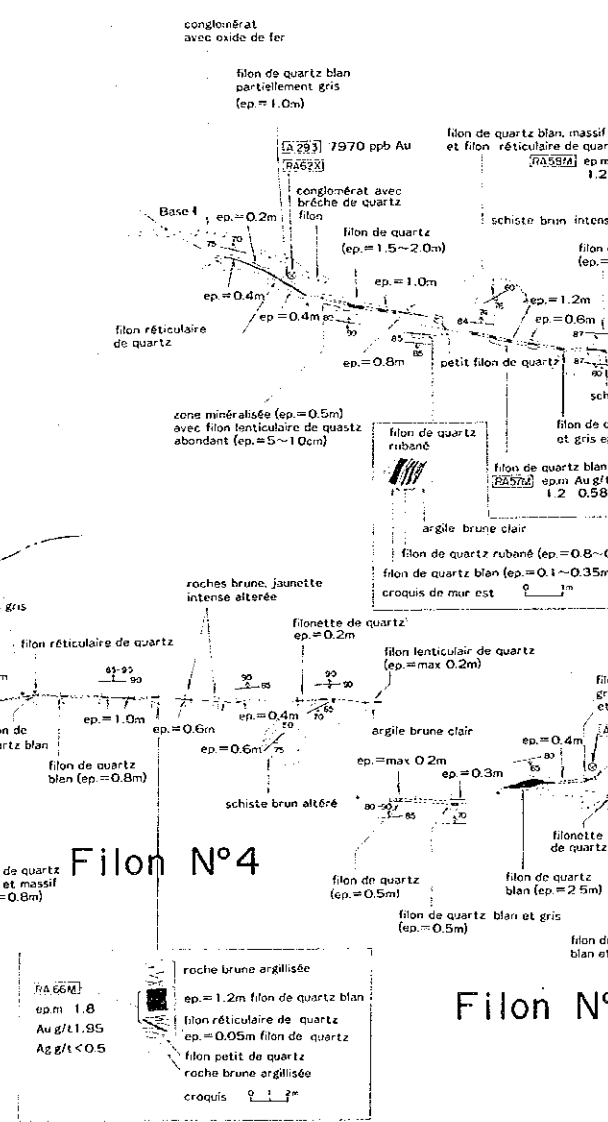 conglomérat
avec oxide de fer
filon de quartz blan
partiellement gris
(ep.=1.0m)
A 293 7970 ppb Au
RA62X
filon de quartz blan, massif
et filon réticulaire de quar
RA58M ep.m
1.2
conglomérat avec
brèche de quartz
filon
Base 1
ep.=0.2m
filon de quartz
(ep.=1.5~2.0m)
schiste brun intens
filon
(ep.=
75 70
ep.=1.0m
60
76
ep.=1.2m
ep.=0.4m
ep.=0.4m
80
90
84
ep.=0.6m
87
filon réticulaire
de quartz
85
85
ep.=0.8m
petit filon de quartz
87
80
sch
zone minéralisée (ep.=0.5m)
avec filon lenticulaire de quastz
abondant (ep.=5~10cm)
filon de quartz
rubané
filon de q
et gris e
filon de quartz blan
RA57M ep.m Au g/t
1.2 0.58
argile brune clair
filon de quartz rubané (ep.=0.8~0
filon de quartz blan (ep.=0.1~0.35m
croquis de mur est 0 1m
gris
roches brune, jaunette
intense alterée
filonette de quartz
ep.=0.2m
filon réticulaire de quartz
filon lenticulair de quartz
(ep.=max 0.2m)
85-95
90
90
85
90
90
ep.=1.0m
ep.=0.6m
ep.=0.4m
65
70
50
75
ep.=0.6m
argile brune clair
n de
rtz blan
filon de quartz
blan (ep.=0.8m)
schiste brun altéré
ep.=max 0.2m
ep.=0.3m
ep.=0.4m
80
85
fil
gr
et
A
80-90
85
70
filonette
de quartz
de quartz
et massif
=0.8m)
Filon N°4
filon de quartz
(ep.=0.5m)
filon de quartz
blan (ep.=2.5m)
filon de quartz blan et gris
(ep.=0.5m)
filon d
blan et
Filon N°
RA66M
ep.m 1.8
Au g/t 1.95
Ag g/t <0.5
roche brune argillisée
ep.=1.2m filon de quartz blan
filon réticulaire de quartz
ep.=0.05m filon de quartz
filon petit de quartz
roche brune argillisée
croquis 0 1 2m